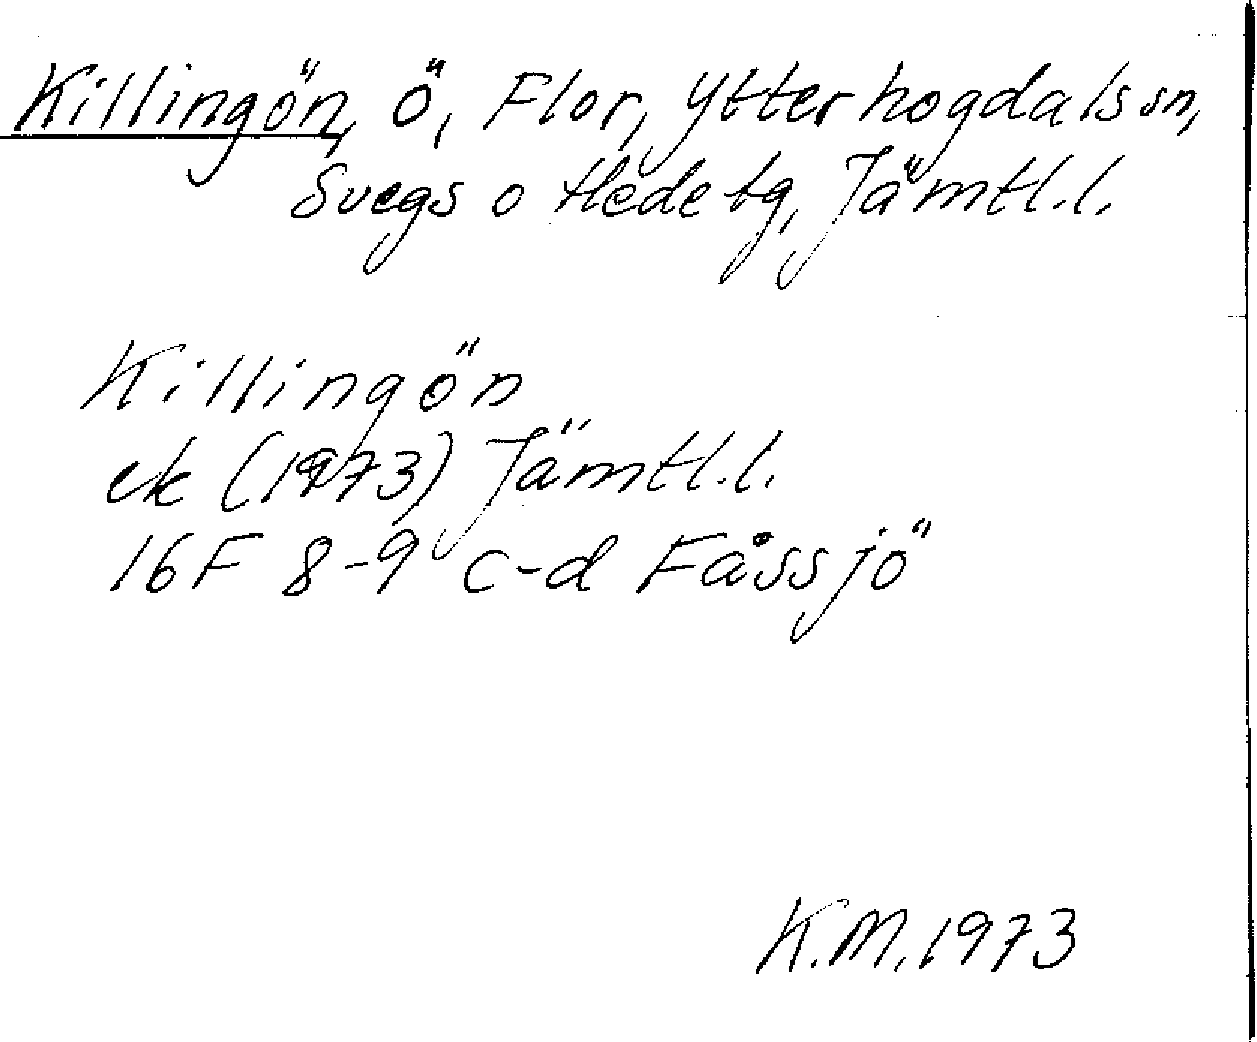 Killingön, ö, Flor, Ytterhogdals sn,
Svegs o Hede tg, Jämtl.l.
Killingön
ek (1973) Jämtl.l.
16F 8-9 c-d Fåssjö
K.M. 1973